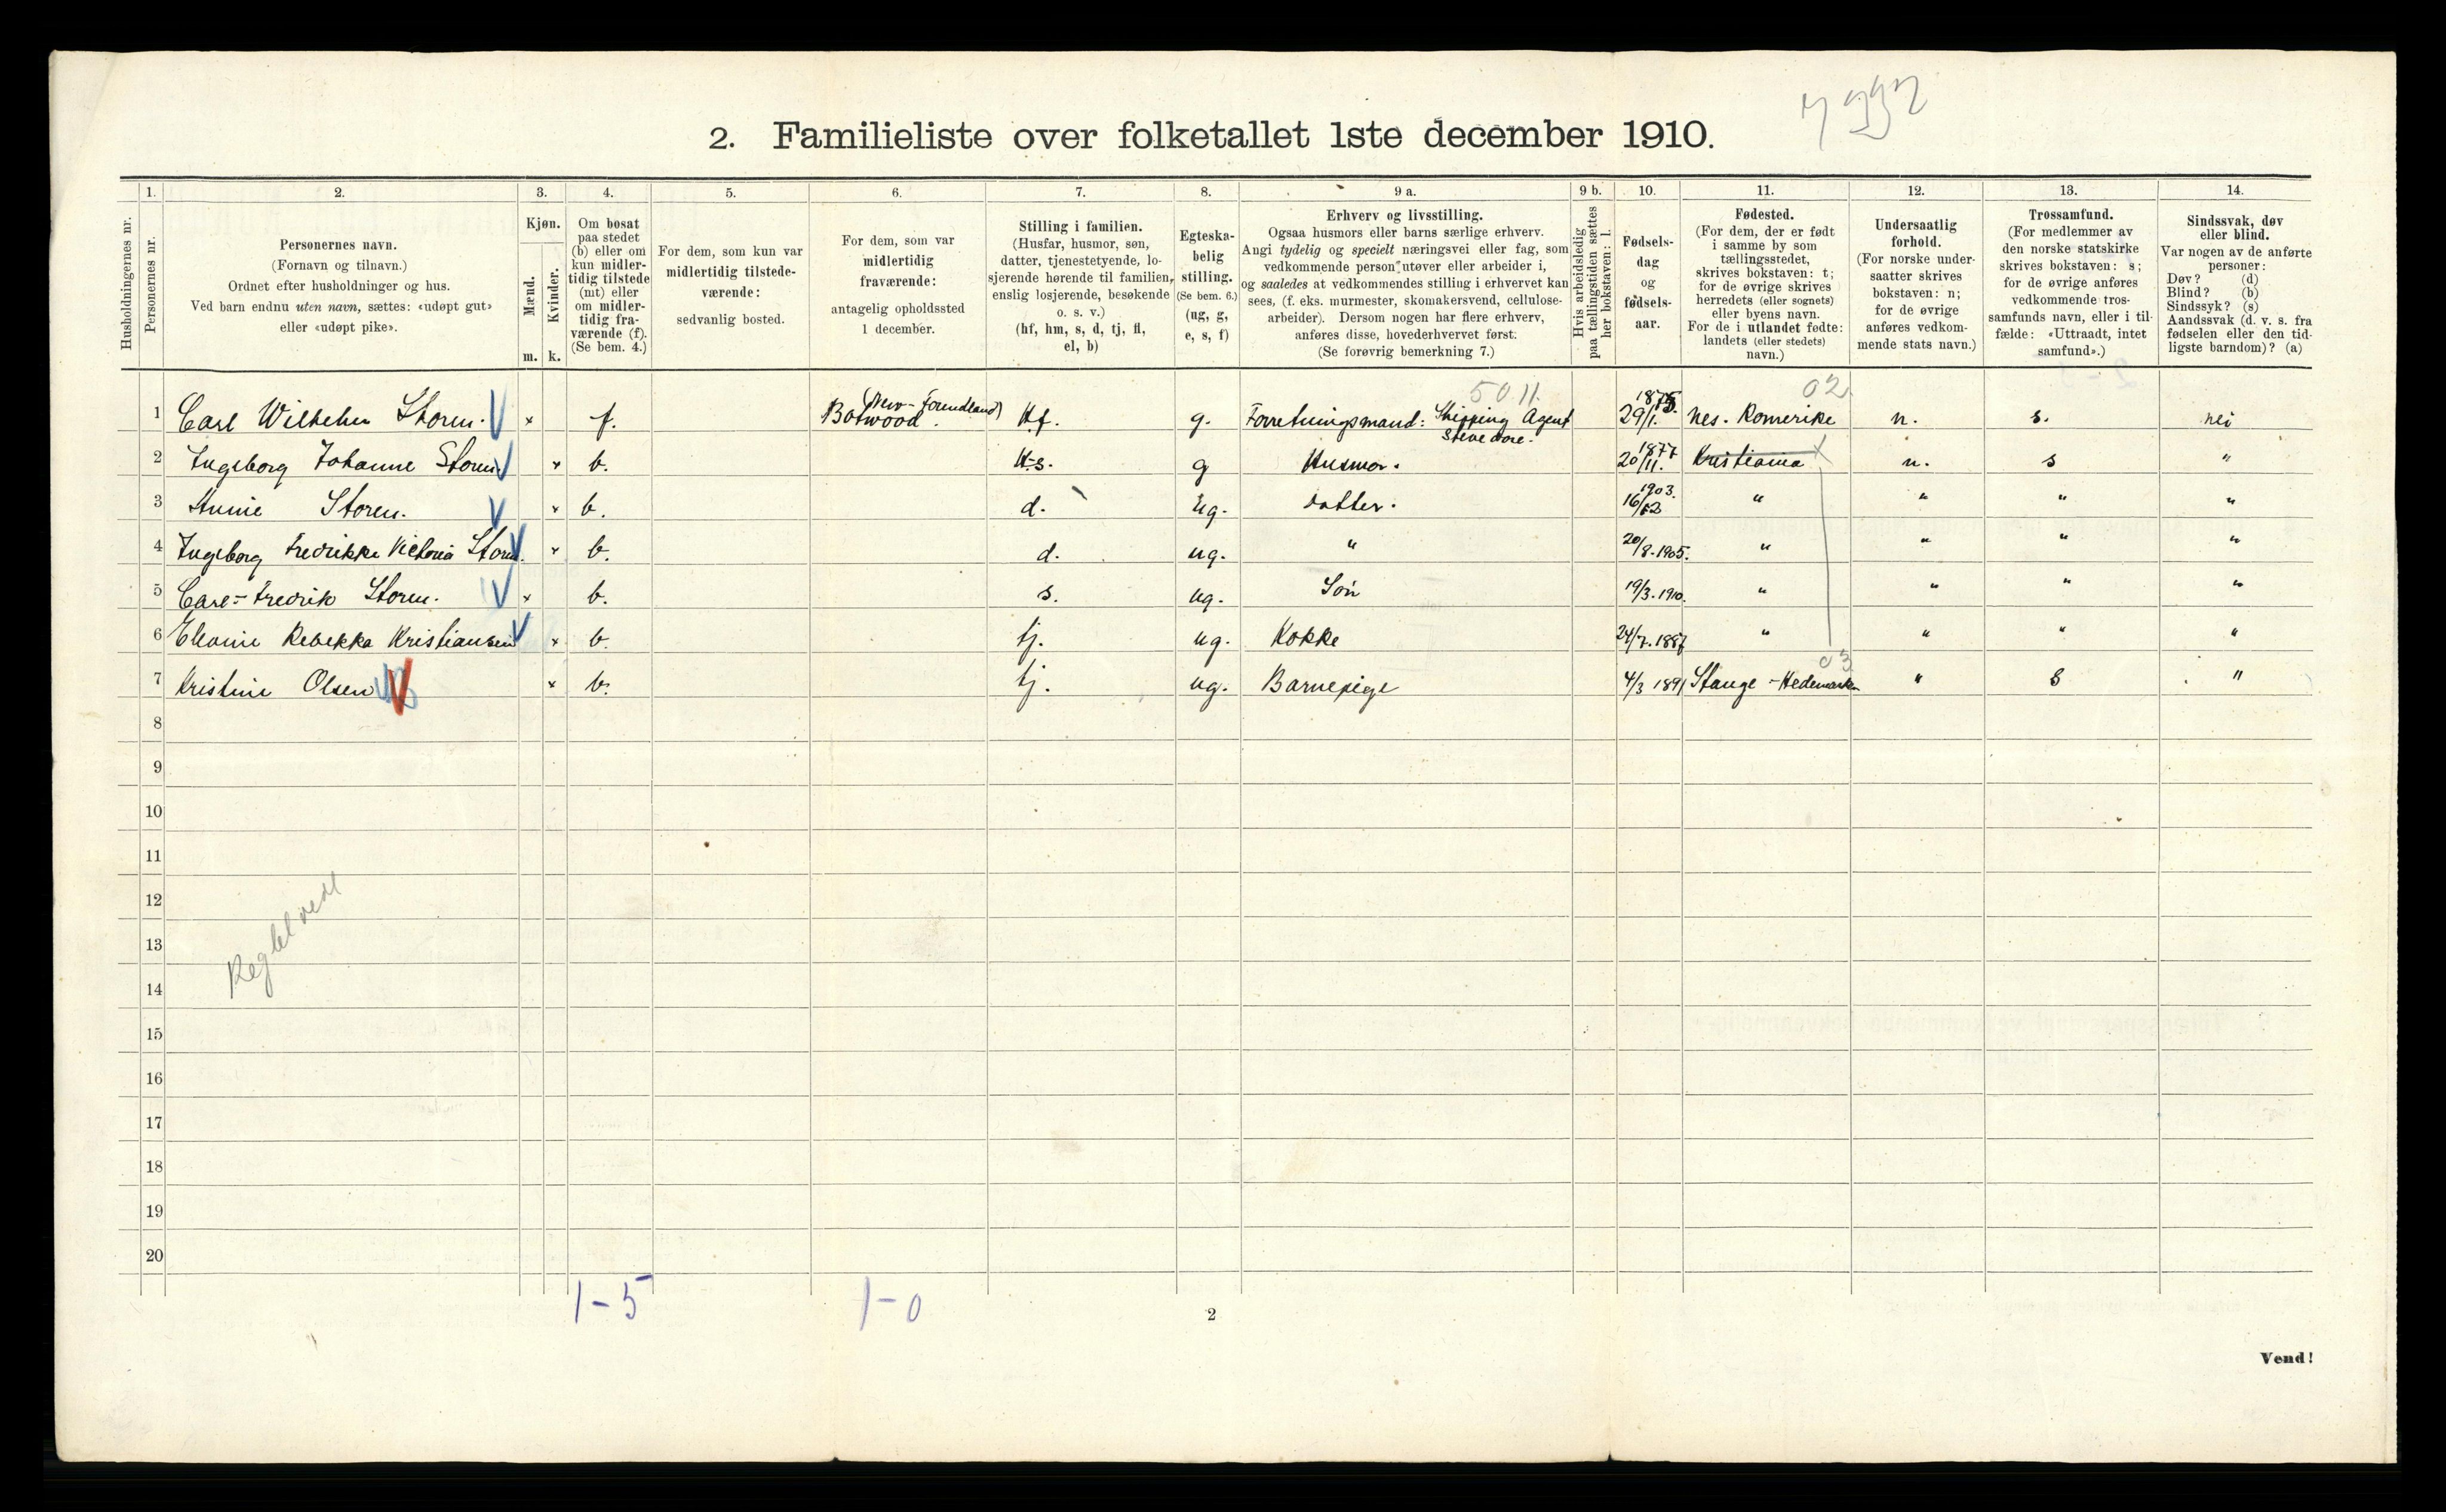 7332
2. Familieliste over folketallet 1ste december 1910.
1. 2. 3. 4. 5. 6. 7. 8. 9 a. 9 b. 10. 11. 12. 13. 14.
Husholdningernes nr.
Personernes nr.
Personernes navn.
(Fornavn og tilnavn.)
Ordnet efter husholdninger og hus.
Ved barn endnu uten navn, sættes: «udøpt gut»
eller «udøpt pike».
Kjøn.
Mænd.
Kvinder.
m. k.
Om bosat
paa stedet
(b) eller om
kun midler-
tidig tilstede
(mt) eller
om midler-
tidig fra-
værende (f).
(Se bem. 4.)
For dem, som kun var
midlertidig tilstede-
værende:
sedvanlig bosted.
For dem, som var
midlertidig
fraværende:
antagelig opholdssted
1 december.
Stilling i familien.
(Husfar, husmor, søn,
datter, tjenestetyende, lo-
sjerende hørende til familien,
enslig losjerende, besøkende
o. s. v.)
(hf, hm, s, d, tj, fl,
el, b)
Egteska-
belig
stilling.
(Se bem. 6.)
(ug, g,
e, s, f)
Erhverv og livsstilling.
Ogsaa husmors eller barns særlige erhverv.
Angi tydelig og specielt næringsvei eller fag, som
vedkommende person utøver eller arbeider i,
og saaledes at vedkommendes stilling i erhvervet kan
sees, (f. eks. murmester, skomakersvend, cellulose-
arbeider). Dersom nogen har flere erhverv,
anføres disse, hovederhvervet først.
(Se forøvrig bemerkning 7.)
Hvis arbeidsledig
paa tællingstiden sættes
her bokstaven: l.
Fødsels-
dag
og
fødsels-
aar.
Fødested.
(For dem, der er født
i samme by som
tællingsstedet,
skrives bokstaven: t;
for de øvrige skrives
herredets (eller sognets)
eller byens navn.
For de i utlandet fødte:
landets (eller stedets)
navn.)
Undersaatlig
forhold.
(For norske under-
saatter skrives
bokstaven: n;
for de øvrige
anføres vedkom-
mende stats navn.)
Trossamfund.
(For medlemmer av
den norske statskirke
skrives bokstaven: s;
for de øvrige anføres
vedkommende tros-
samfunds navn, eller i til-
fælde: «Uttraadt, intet
samfund».)
Sindssvak, døv
eller blind.
Var nogen av de anførte
personer:
Døv? (d)
Blind? (b)
Sindssyk? (s)
Aandssvak (d. v. s. fra
fødselen eller den tid-
ligste barndom)? (a)
5011. 02
(New-Foundland) 1875.
1 Carl Wilhelm Storm. × f. Botwood. Hf. g. Forretningsmand: Shipping Agent 29/1. Nes. Romerike n. s. nei
Stevedore.
2 Ingeborg Johanne Storm × b. H-s. g Husmor. 20/11. 1877 Kristiania n. s "
3 Annie Storm. × b. d. Ug. datter. 16/12 1903. " " " "
4 Ingeborg Fredrikke Victoria Storm. × b. d. ug. " 20/8-1905. " " " "
5 Carl-Fredrik Storm. × b. s. ug. Søn 19/3. 1910. " " " "
6 Eleonie Rebekka Kristiansen × b. tj. ug. Kokke 24/7. 1887 " " " "
03
7 Kristine Olsen × b. tj. ug. Barnepige 4/3 1891 Stange - Hedemarken " s "
8
9
10
11
12
13
14
15
16
17
18
19
20
1-5 1-0
2
Vend!